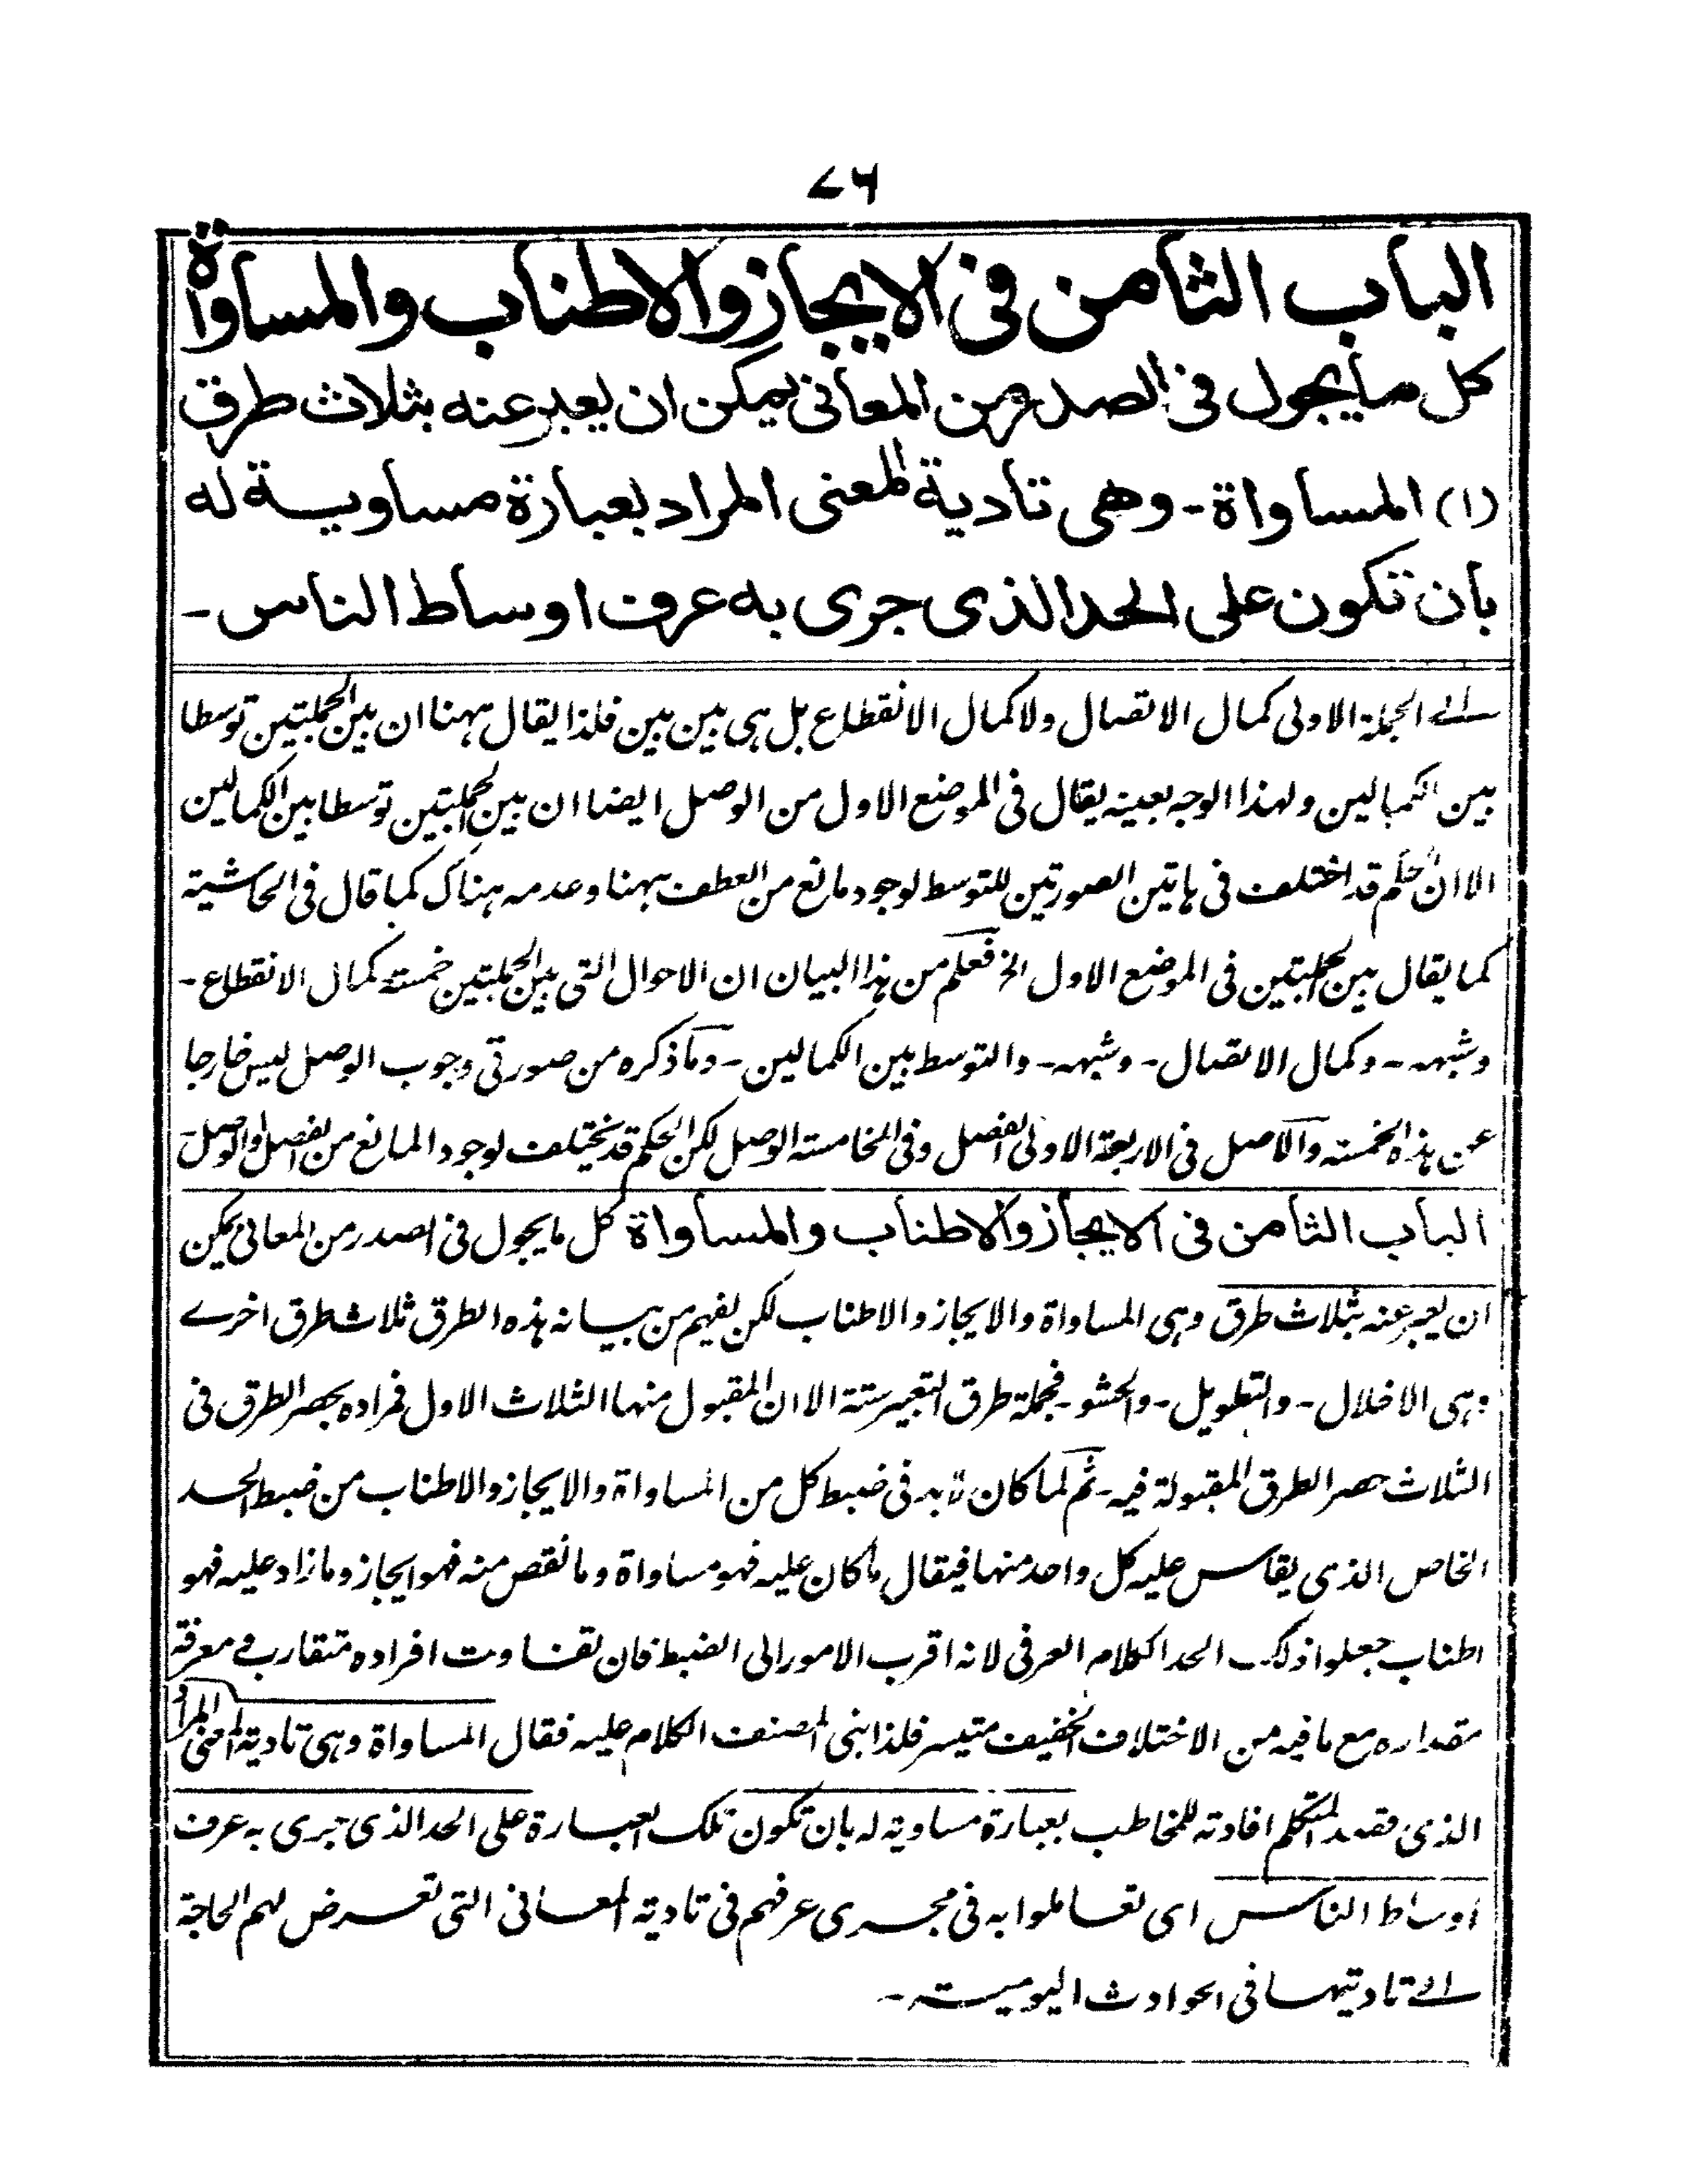 ٧٦
الباب الثامن فى الايجاز والاطناب والمساواة
كل ما يجول فى الصدر من المعانى يمكن ان يعبر عنه بثلاث طرق
(١) المساواة - وهى تادية المعنى المراد بعبارة مساوية له
بان تكون على الحد الذى جرى به عرف اوساط الناس -
الى الجملة الاولى كمال الاتصال ولا كمال الانقطاع بل هى بين بين فلذا يقال ههنا ان بين الجملتين توسطا
بين الكمالين ولهذا الوجه بعينه يقال فى الموضع الاول من الوصل ايضا ان بين الجملتين توسطا بين الكمالين
الا ان الحكم قد اختلف فى هاتين الصورتين للتوسط لوجود مانع من العطف ههنا وعدمه هناك كما قال فى الحاشية
كما يقال بين الجملتين فى الموضع الاول الخ فعلم من هذا البيان ان الاحوال التى بين الجملتين خمسة كمال الانقطاع -
وشبهه - وكمال الاتصال - وشبهه - والتوسط بين الكمالين - وما ذكره من صورتى وجوب الوصل ليس خارجا
عن هذه الخمسة والاصل فى الاربعة الاولى الفصل وفى الخامسة الوصل لكن الحكم قد يختلف لوجود المانع من الفصل او الوصل -
الباب الثامن فى الايجاز والاطناب والمساواة كل ما يجول فى الصدر من المعانى يمكن
ان يعبر عنه بثلاث طرق وهى المساواة والايجاز والاطناب لكن يفهم من بيانه هذه الطرق ثلاث طرق اخرى
وهى الاخلال - والتطويل - والحشو - فجملة طرق التعبير ستة الا ان المقبول منها الثلاث الاول فمراده بحصر الطرق فى
الثلاث حصر الطرق المقبولة فيه - ثم لما كان لابد فى ضبط كل من المساواة والايجاز والاطناب من ضبط الحد
الخاص الذى يقاس عليه كل واحد منها فيقال ما كان عليه فهو مساواة وما نقص منه فهو ايجاز وما زاد عليه فهو
اطناب جعلوا ذلك الحد الكلام العرفى لانه اقرب الامور الى الضبط فان تفاوت افراده متقارب ومعرفة
مقداره مع ما فيه من الاختلاف الخفيف متيسر فلذا بنى المصنف الكلام عليه فقال المساواة وهى تادية المعنى المراد
الذى قصد المتكلم افادته للمخاطب بعبارة مساوية له بان تكون تلك العبارة على الحد الذى جرى به عرف
اوساط الناس اى تعاملوا به فى مجرى عرفهم فى تادية المعانى التى تعرض لهم الحاجة
الى تاديتها فى الحوادث اليومية -